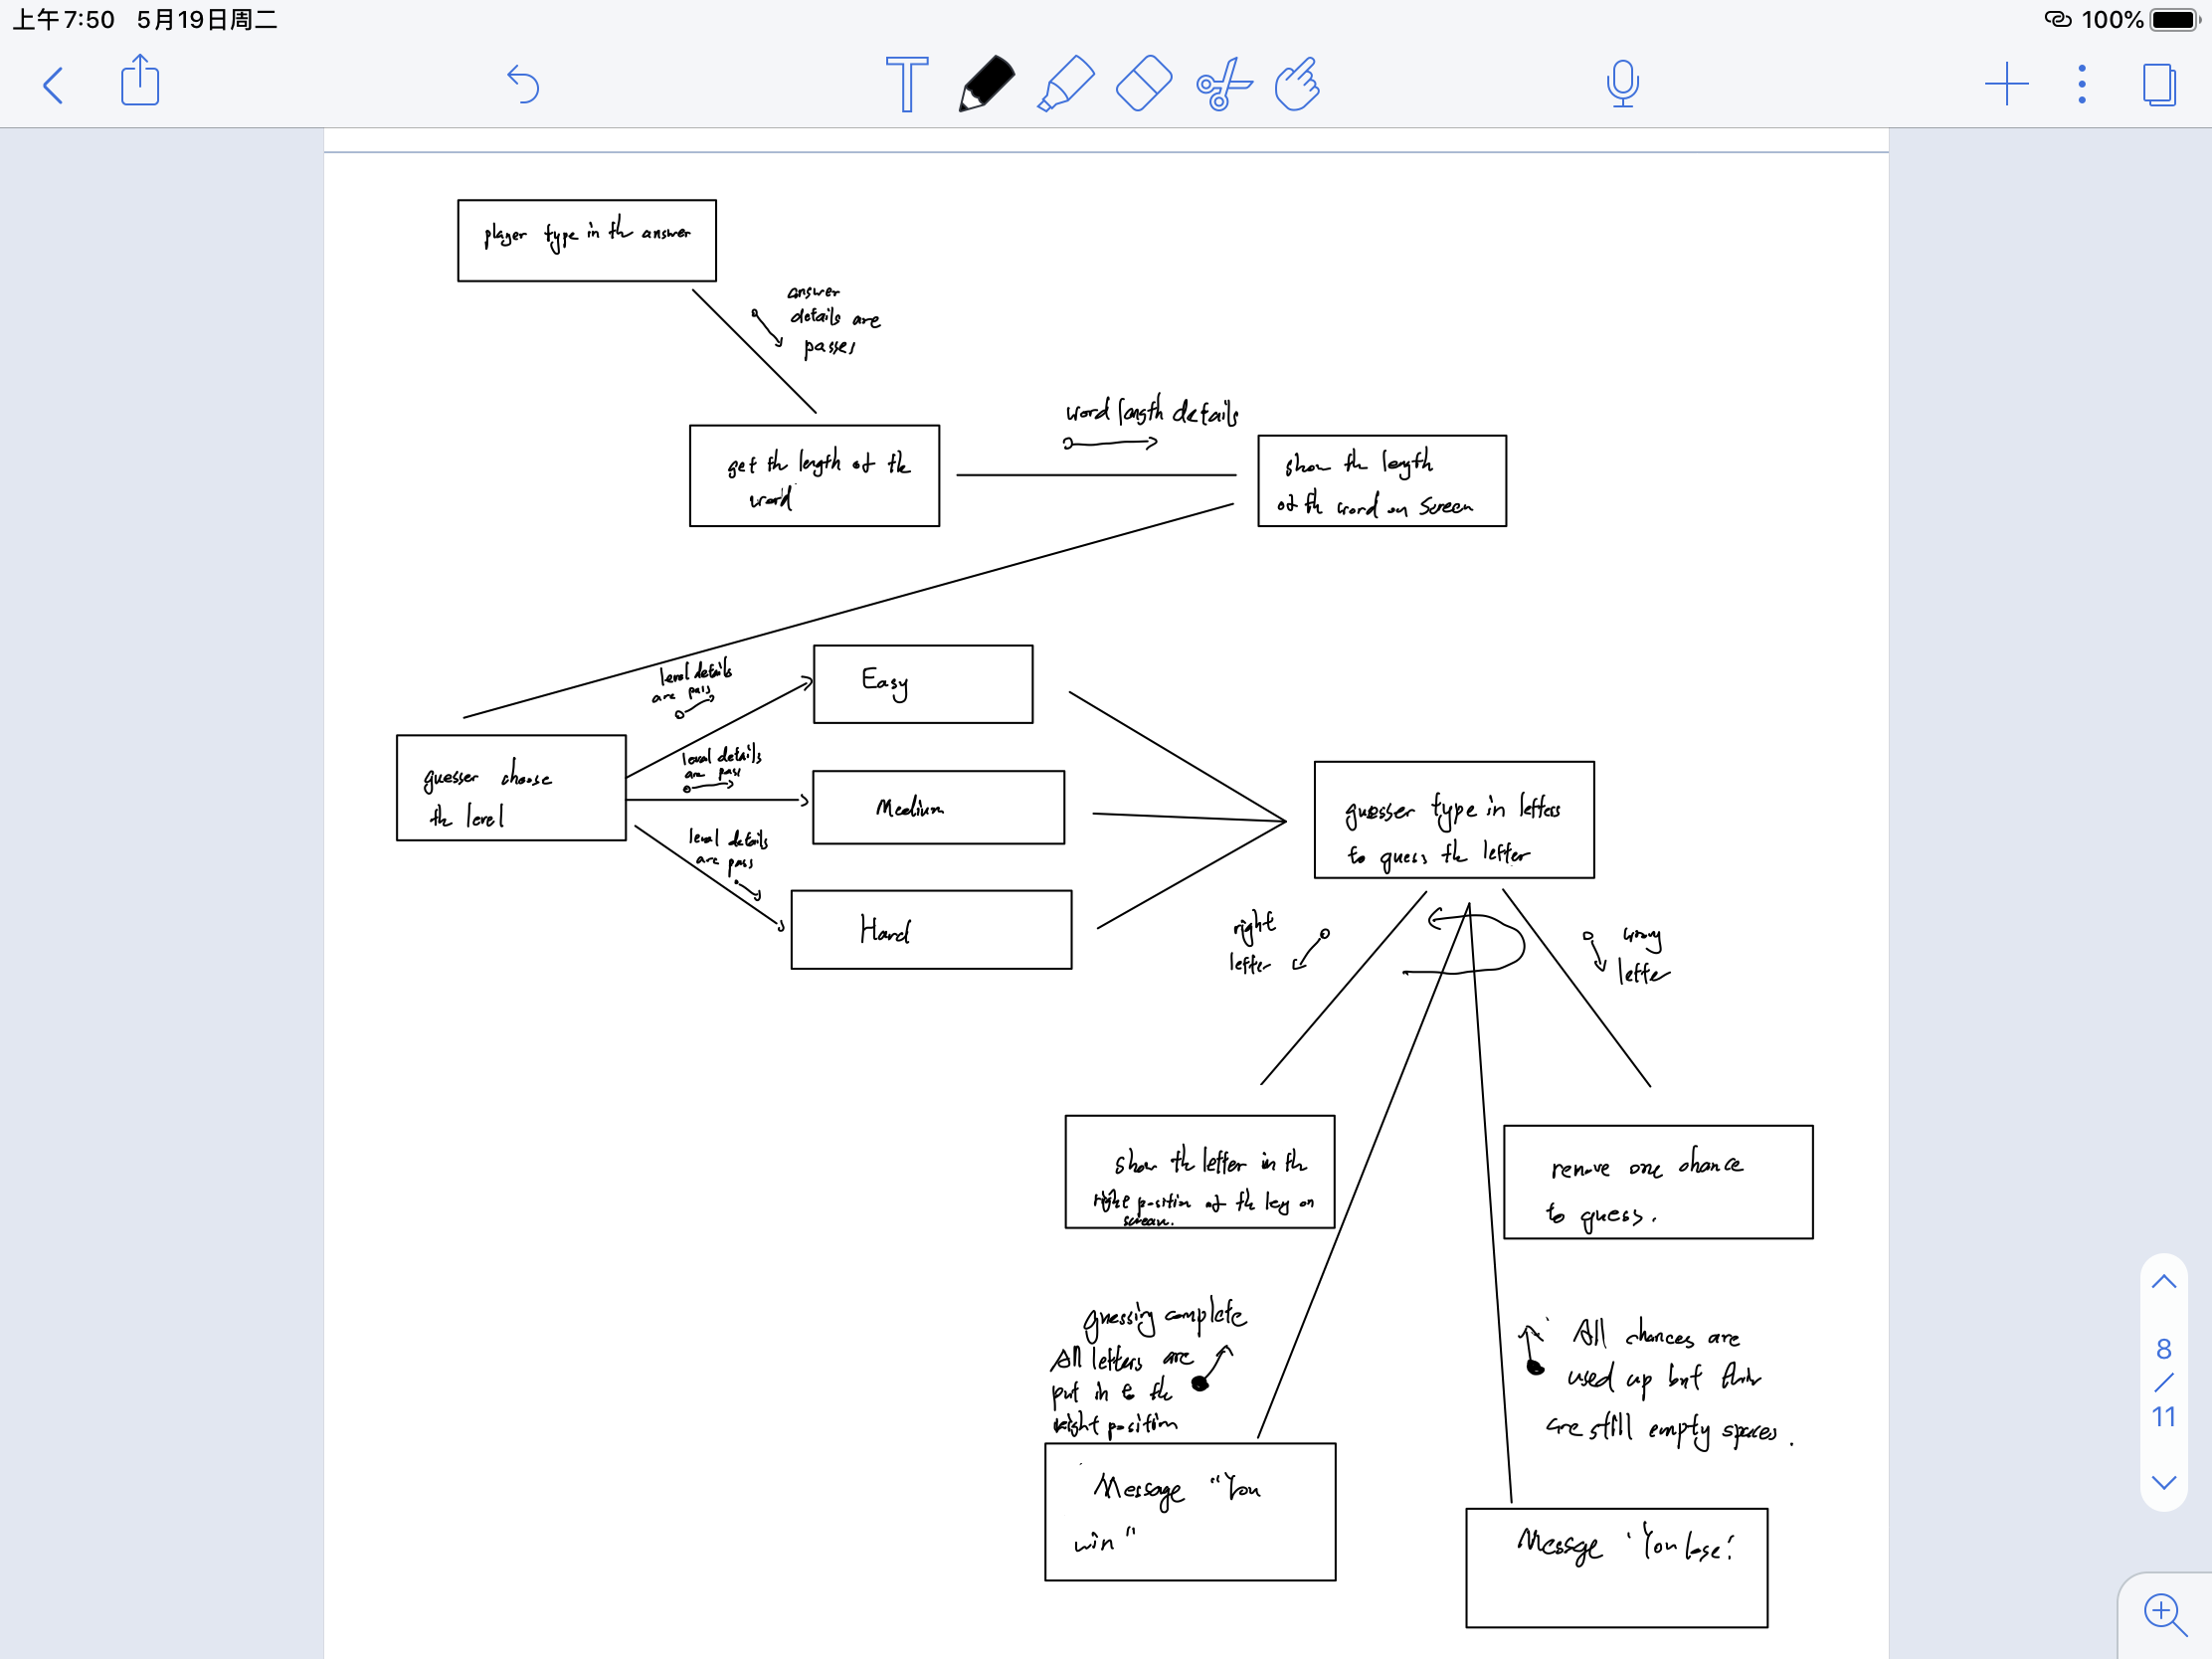 上午7:50 5月19日周二
100%
player type in th answer
answer
details are
passes
word length details
get th length of the
word
show the length
of th word on screen
level details
are pass
Easy
level details
are pass
guesser choose
th level
Medium
level details
are pass
Hard
guesser type in letters
to guess the letter
right
letter
wrong
letter
show th letter in th
right position of th key on
screen.
remove one chance
to guess.
guessing complete
All letters are
put in to the
right position
All chances are
used up but
are still empty spaces.
Message "You
win"
Message 'You lose'.
8
/
11